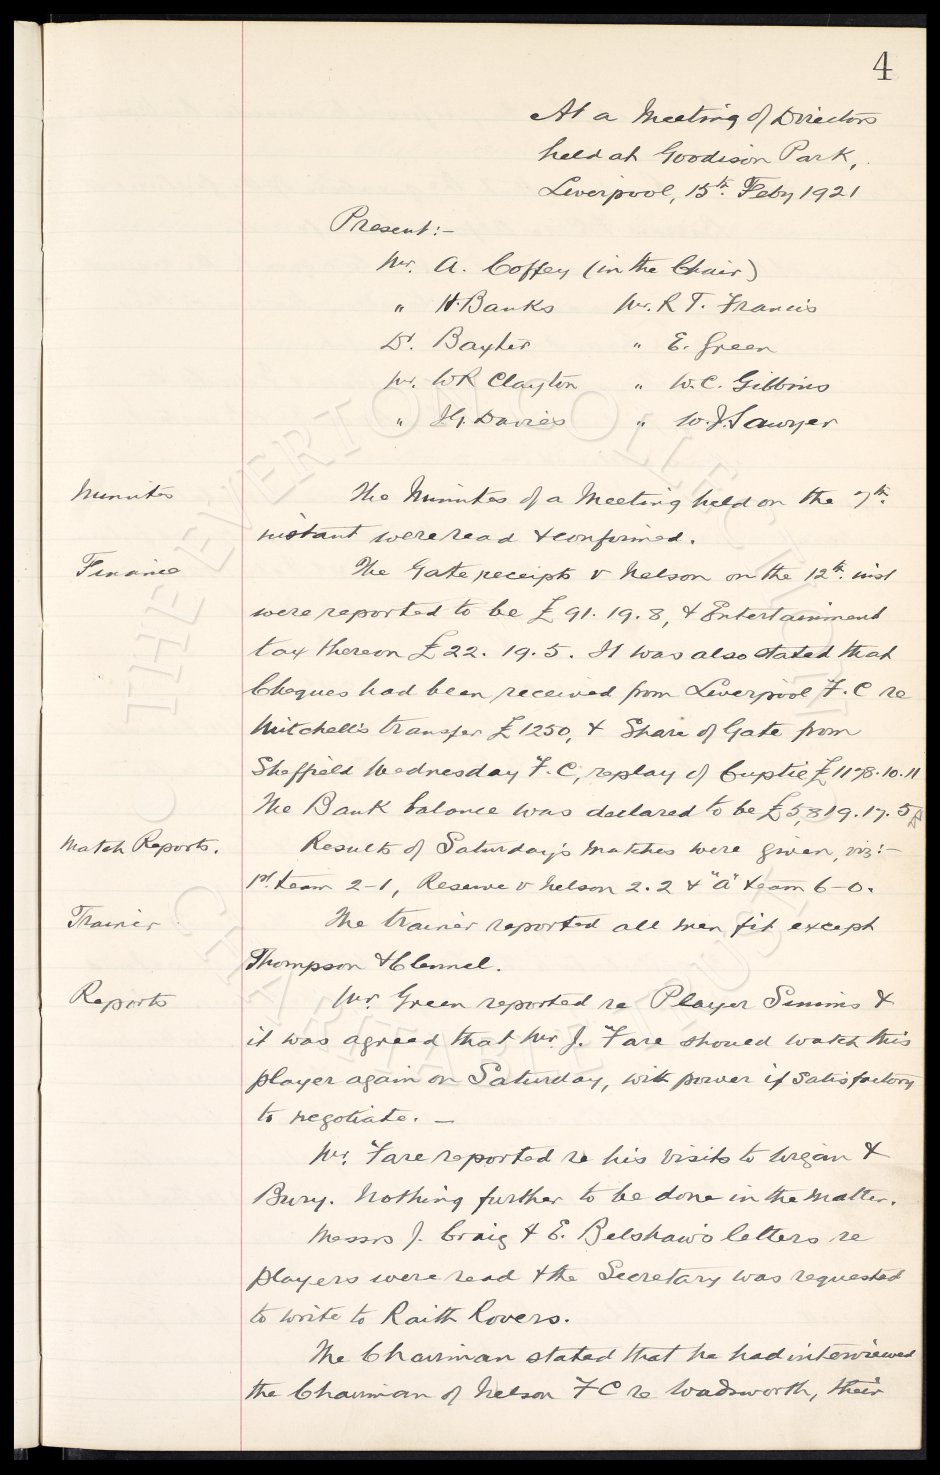 4
At a Meeting of Directors
held at Goodison Park,
Liverpool, 15th. Feby 1921
Present:-
Mr. A. Coffey (in the Chair)
" H. Banks Mr. R T. Francis
Dr. Baxter " E. Green
Mr. W R Clayton " W. C. Gibbins
" J. G. Davies " W. J. Sawyer
Minutes The Minutes of a Meeting held on the 7th.
instant were read & confirmed.
Finance The Gate receipts v Nelson on the 12th. inst
were reported to be £91. 19. 8, & Entertainment
tax thereon £22. 19. 5. It was also stated that
Cheques had been received from Liverpool F. C re
Mitchell's transfer £1250, & Share of Gate from
Sheffield Wednesday F. C, replay of Cuptie £1178. 10. 11
The Bank balance was declared to be £5,819. 17. 5
Match Reports. Results of Saturday's Matches were given, viz:-
1st. team 2-1, Reserve v Nelson 2. 2 & "A" team 6-0.
Trainer The trainer reported all men fit except
Thompson & Clennel.
Reports Mr. Green reported re Player Simms &
it was agreed that Mr. J. Fare should watch this
player again on Saturday, with power if satisfactory
to negotiate. —
Mr. Fare reported re his visits to Wigan &
Bury. Nothing further to be done in the matter.
Messrs J. Craig & E. Belshaw's letters re
players were read & the Secretary was requested
to write to Raith Rovers.
The Chairman stated that he had interviewed
the Chairman of Nelson F C re Wadsworth, their
© THE EVERTON COLLECTION
CHARITABLE TRUST